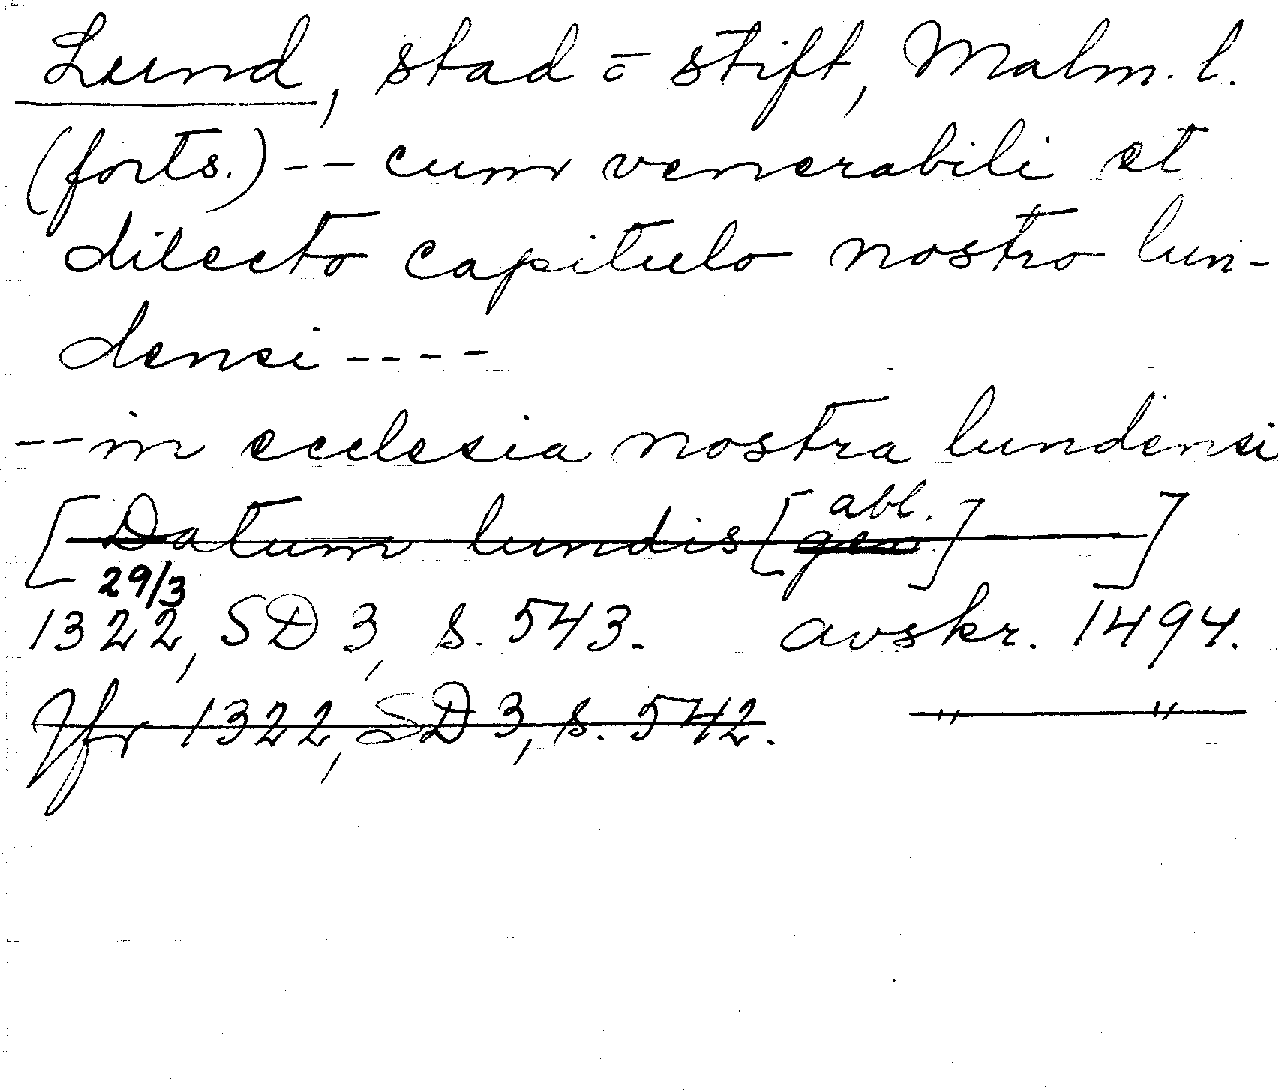 Lund, stad o stift, Malm. l.
(forts.) -- cum venerabili et
dilecto capitulo nostro lun-
densi ----
-- in ecclesia nostra lundensi
[Datum lundis [gen. abl.] ]
29/3
1322, SD 3, s. 543. avskr. 1494.
Jfr 1322, SD 3, s. 542. —〃—〃—